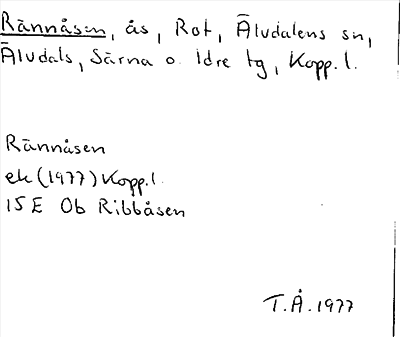 Rännåsen, ås, Rot, Älvdalens sn,
Älvdals, Särna o. Idre tg, Kopp. l.
Rännåsen
ek (1977) Kopp. l.
15 E Ob Ribbåsen
T.Å. 1977